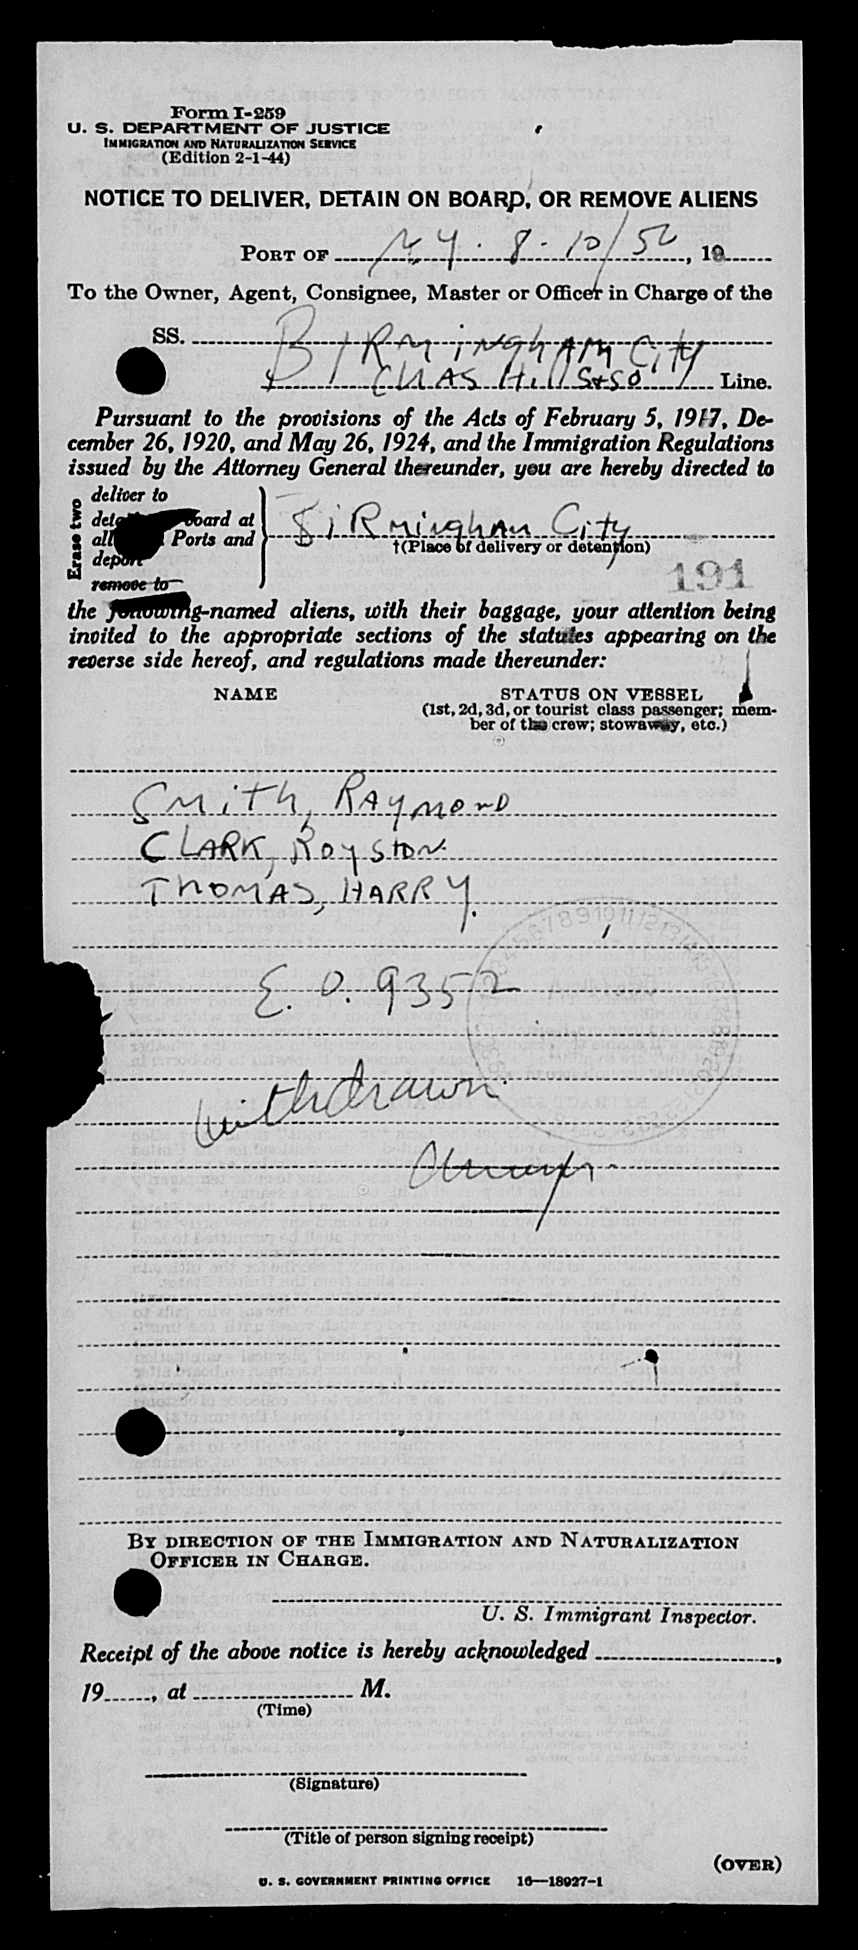 Form I-259
U. S. DEPARTMENT OF JUSTICE
IMMIGRATION AND NATURALIZATION SERVICE
(Edition 2-1-44)
NOTICE TO DELIVER, DETAIN ON BOARD, OR REMOVE ALIENS
PORT OF N.Y. 8-10/50, 19
To the Owner, Agent, Consignee, Master or Officer in Charge of the
SS. BIRMINGHAM CITY
CHAS Hill S+SO Line.
Pursuant to the provisions of the Acts of February 5, 1917, De-
cember 26, 1920, and May 26, 1924, and the Immigration Regulations
issued by the Attorney General thereunder, you are hereby directed to
Erase two
deliver to
board at
all Ports and
deport
remove to
BiRMINGHAM CITY
†(Place of delivery or detention)
191
the following-named aliens, with their baggage, your attention being
invited to the appropriate sections of the statutes appearing on the
reverse side hereof, and regulations made thereunder:
NAME STATUS ON VESSEL
(1st, 2d, 3d, or tourist class passenger; mem-
ber of the crew; stowaway, etc.)
SMITH, RAYMOND
CLARK, ROYSTON
THOMAS, HARRY.
E. O. 9352
Withdrawn
BY DIRECTION OF THE IMMIGRATION AND NATURALIZATION
OFFICER IN CHARGE.
U. S. Immigrant Inspector.
Receipt of the above notice is hereby acknowledged ,
19 , at M.
(Time)
(Signature)
(Title of person signing receipt)
(OVER)
U. S. GOVERNMENT PRINTING OFFICE 16—18927-1